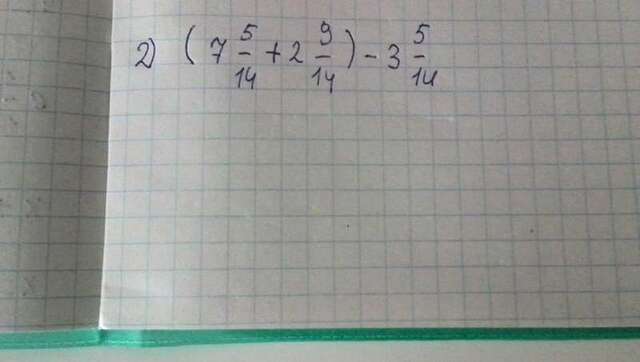 2) (7 5/14 + 2 9/14) - 3 5/14